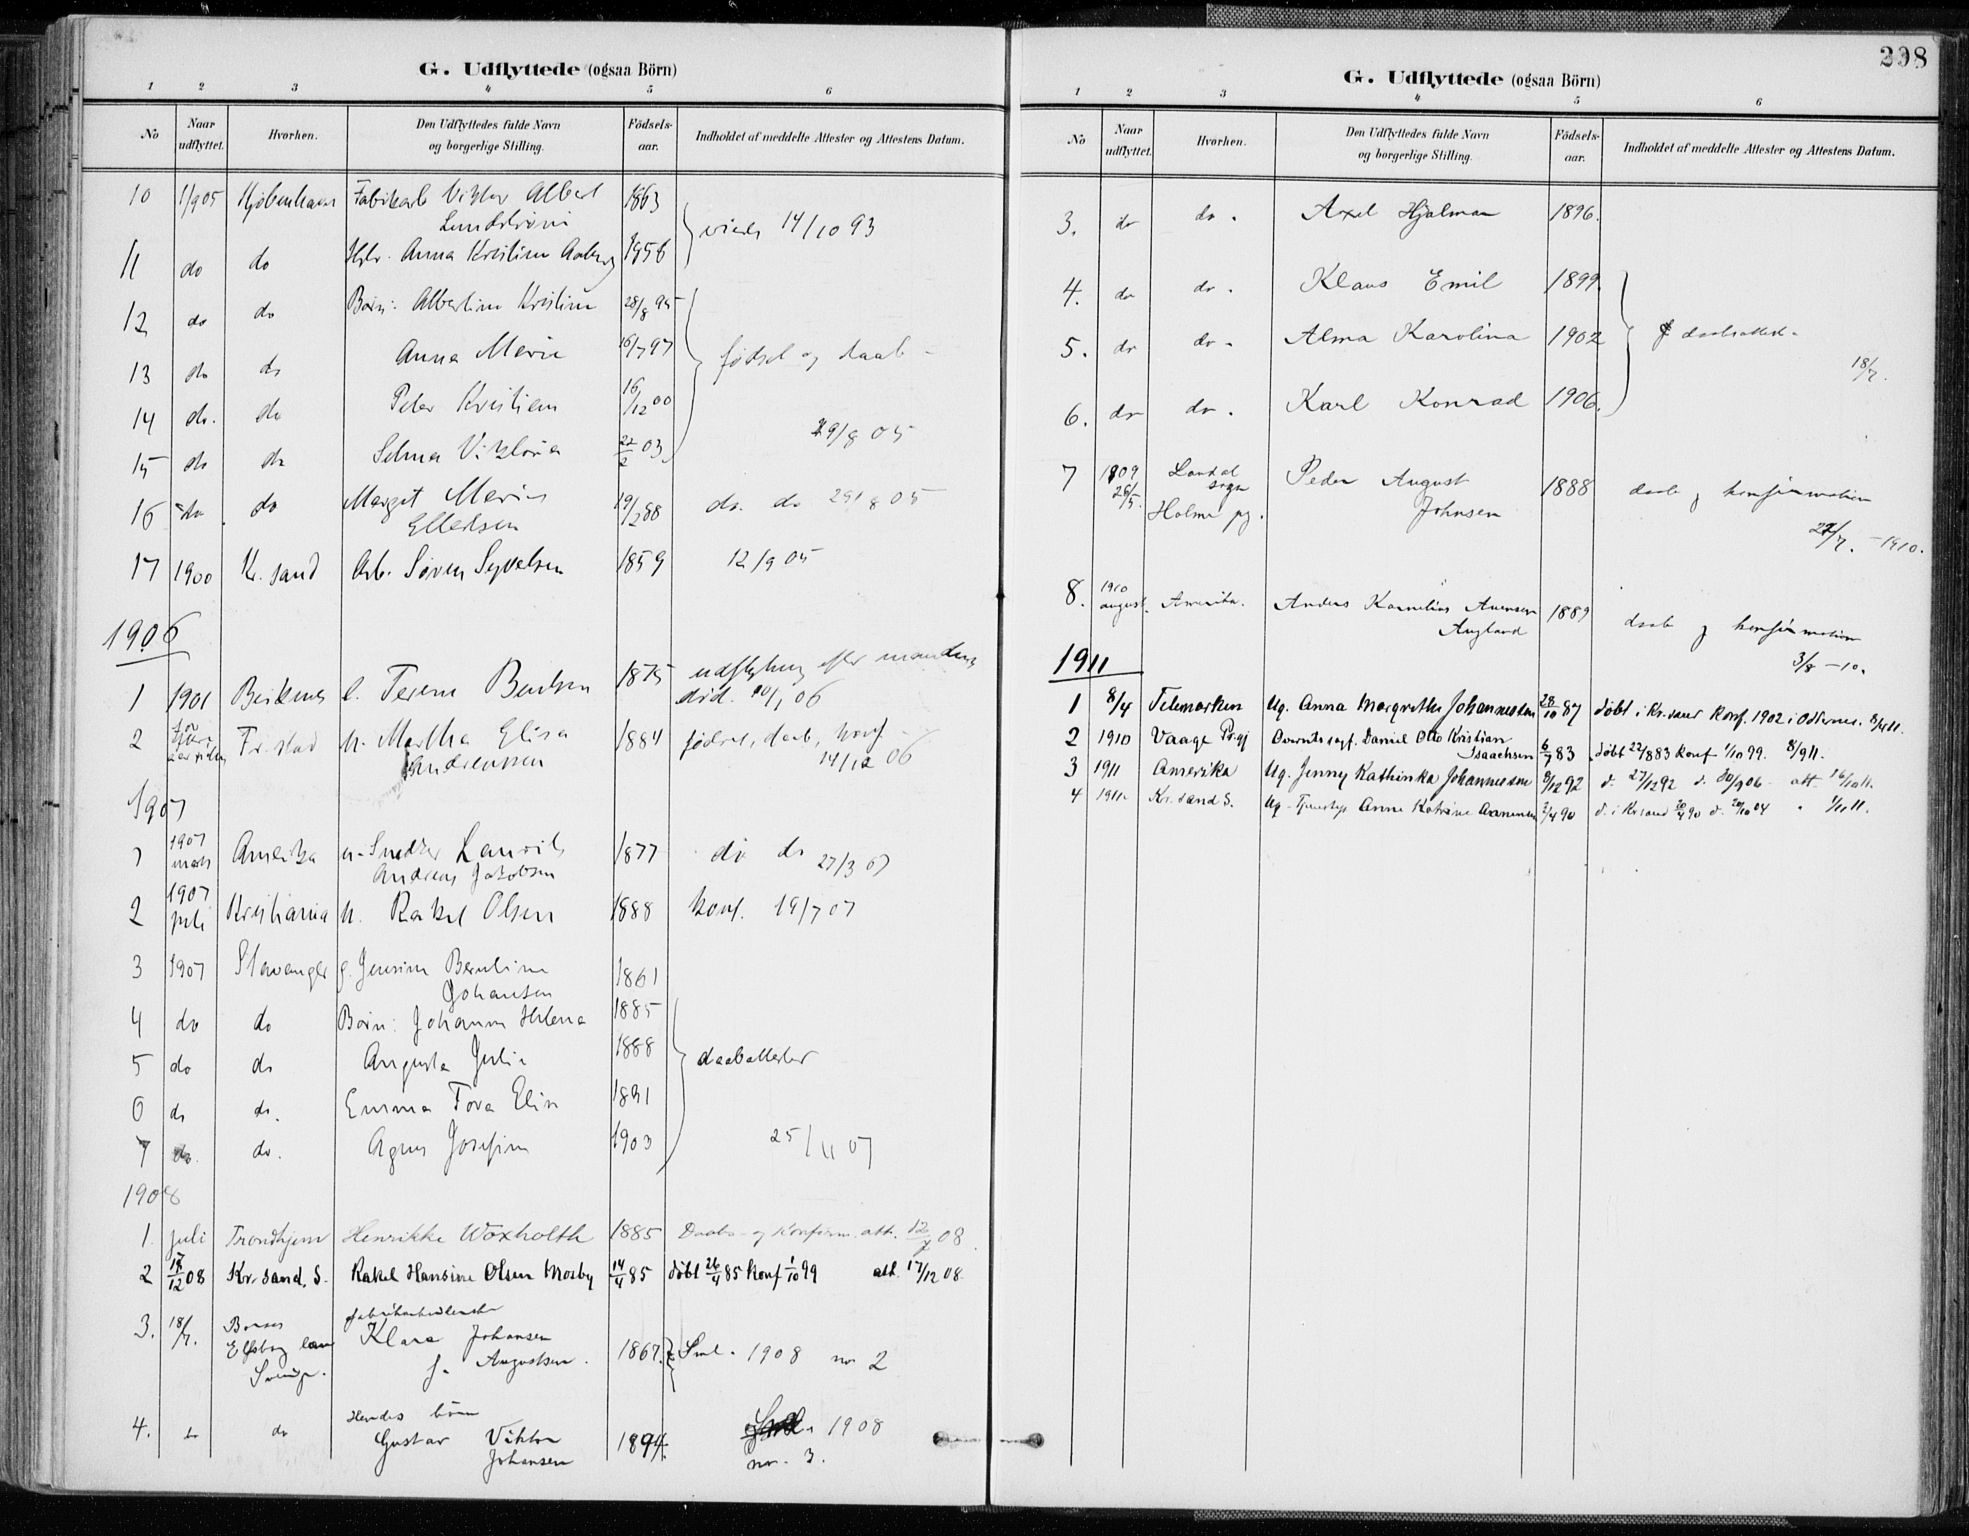 G. Udflyttede (ogsaa Börn)
1 2 3 4 5 6
No Naar udflyttet. Hvorhen. Den Udflyttedes fulde Navn og borgerlige Stilling. Födsels-aar. Indholdet af meddelte Attester og Attestens Datum.
10 1/9 05 Kjøbenhavn Fabrikarb Viktor Albert 1863
Lundstrøm
viede 14/10 93
11 do do Anna Kristine 1856
12 do do Børn: Albertine Kristine 28/8 95
13 do do Anna Marie 16/7 97 fødsel og daab
14 do. do Peter Kristian 16/12 00
29/8 05
15 do do Selma Viktoria 22/2 03
16 do do Margit Marie 19/2 88 do. do 29/8 05
Ellefsen
17 1900 Kr. sand Arb. Søren Syvertsen 1859 12/9 05
1906
1 1901 Birkenes 1875 udflytning efter mandens
død. 06
2 Fr. stad u. Martha Elisa 1884 fødsel, daab, konf.
Andreassen 14/12 06
1907
1 1907 marts Amerika u. Snedker Laurits 1877 do do 27/3 07
Andreas Jakobsen
2 1907 juli Kristiania u. Rakel Olsen 1888 konf. 19/7 07
3 1907 Stavanger g. Jensine Berntine 1861
Johansen
4 do do Børn: Johanne Helena 1885
5 do do Augusta Julie 1888 daabattester
6 do do. Emma Tova Elin 1891
7 do. do. Agnes Josefine 1903 25/11 07
1908
1. juli Trondhjem Henrikke Woxholth 1885 Daabs- og Konfirm. att. 12/7 08.
2 17/12 08 Kr. sand. S. Rakel Hansine Olsen Mosby 14/4 85 døbt 26/4 85 konf 1/10 99 att. 17/12 08.
3. 18/7. fabrikarbeiderske
Elfsborg læn Klara Johansen
Sverige. f. Augustsen. 1867. 1908 no 2
4. do do Hendes børn
Gustav Viktor 1894. 1908
Johansen no. 3.
298
G. Udflyttede (ogsaa Börn)
1 2 3 4 5 6
No Naar udflyttet. Hvorhen. Den Udflyttedes fulde Navn og borgerlige Stilling. Födsels-aar. Indholdet af meddelte Attester og Attestens Datum.
3. do do. Axel Hjalmar 1896.
4. do do. Klaus Emil 1899.
5. do do. Alma Karolina 1902 daabsattest.
18/7.
6. do do. Karl Konrad 1906.
7 1909 Laudal sogn Peder August 1888 daab og konfirmation
26/5. Holme pg. Johnsen
27/7. - 1910.
8. 1910 august. Amerika. Anders Kornelius Aanensen 1889 daab og konfirmation
Augland 3/8 - 10.
1911
1 8/4 Telemarken Ug. Anna Margrethe Johannesen 28/10 87 døbt i Kr.sand konf. 1902 i Oddernes. 8/4 11.
2 1910 Vaage Pr.gj Daniel Otto Kristian
Isaachsen 6/7 83 døbt 22/8 83 konf 1/10 99. 8/9 11.
3 1911 Amerika Ug. Jenny Kathinka Johannesen 8/12 92 d. 27/12 92 30/9 06. att. 16/10 11.
4 1911. Kr. sand S. Ug. Anne Katrine Aanensen 2/4 90 d. i Kr.sand 90 04 " 11.